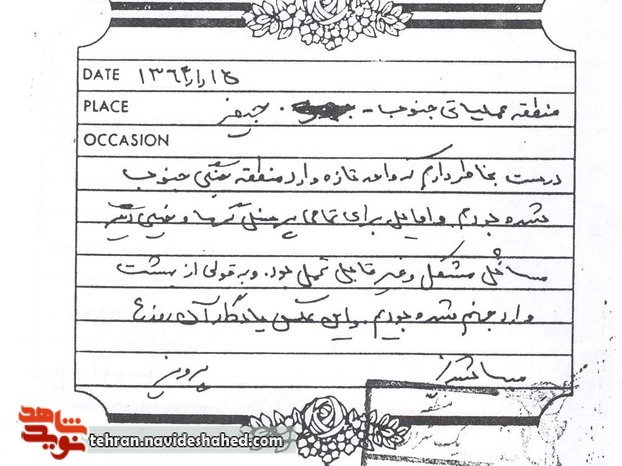 DATE ۱۳۶۴/۱/۱۵
PLACE منطقه عملیاتی جنوب - جفیر
OCCASION
درست بخاطر دارم که اوایل تازه وارد منطقه جنگی جنوب
شده بودم و اوایل برای تمامی پرسنل گرما و خیلی دیگر
مسائل مشکل و غیر قابل تحمل بود. و به قولی از بهشت
وارد جهنم شده بودیم. و این عکس یادگار آن روزها
پرویز
شاهد
نوید
tehran.navideshahed.com